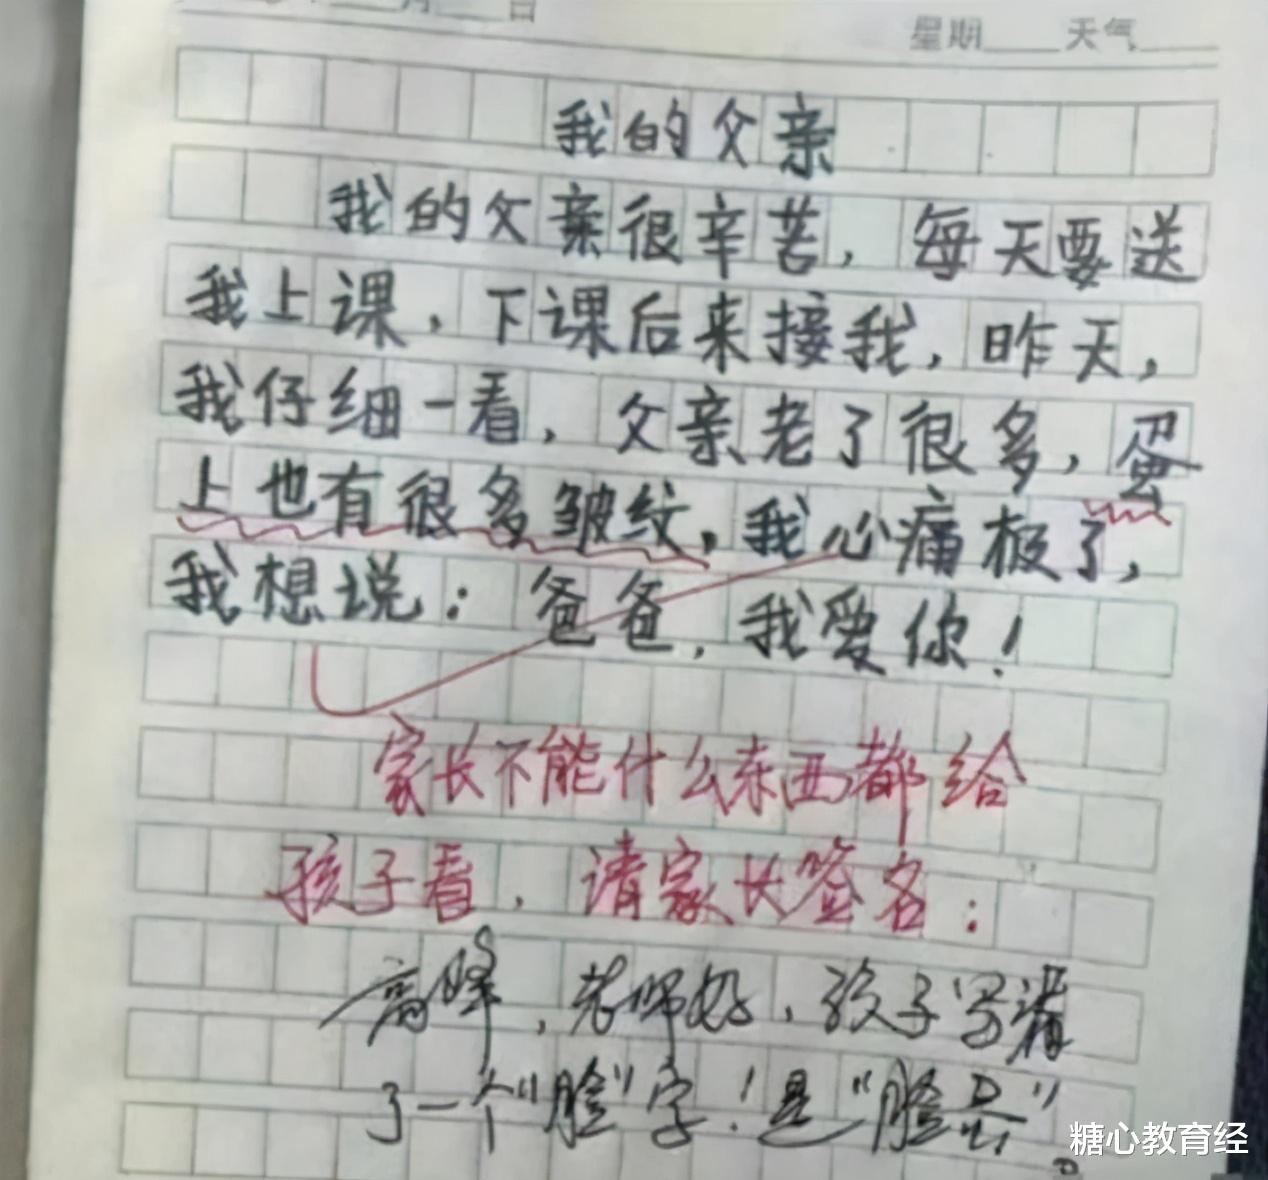 月 日
星期 天气
我的父亲
我的父亲很辛苦，每天要送
我上课，下课后来接我，昨天，
我仔细一看，父亲老了很多，蛋
上也有很多皱纹，我心痛极了，
我想说：爸爸，我爱你！
家长不能什么东西都给
孩子看，请家长签名：
高峰，老师好，孩子写漏
了一个“脸”字！是“脸蛋”
糖心教育经